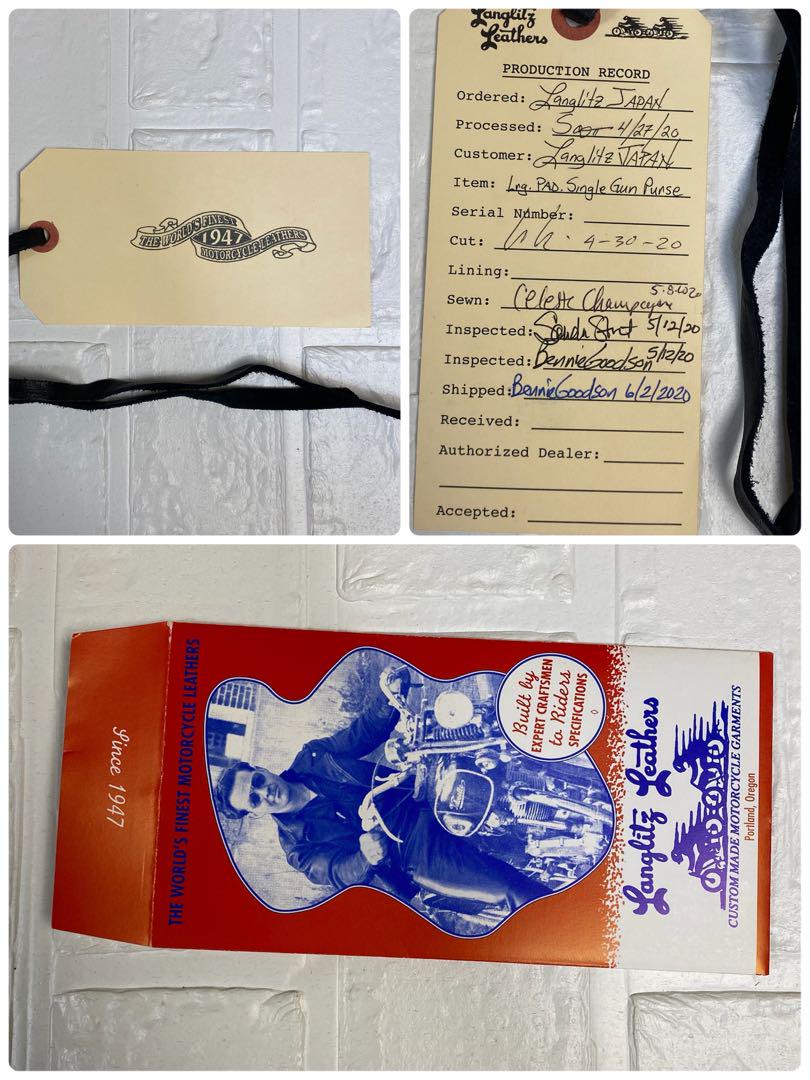 THE WORLD'S FINEST
1947
MOTORCYCLE LEATHERS
Langlitz
Leathers
PRODUCTION RECORD
Ordered: Langlitz JAPAN
Processed: 4/27/20
Customer: Langlitz JAPAN
Item: Lrg. PAD. Single Gun Purse
Serial Number:
Cut: 4-30-20
Lining:
Sewn: Celeste 5.8.2020
Inspected: 5/12/20
Inspected: Bennie Goodson 5/12/20
Shipped: Bennie Goodson 6/2/2020
Received:
Authorized Dealer:
Accepted:
Since 1947
THE WORLD'S FINEST MOTORCYCLE LEATHERS
Built by
EXPERT CRAFTSMEN
to Riders
SPECIFICATIONS
Langlitz Leathers
CUSTOM MADE MOTORCYCLE GARMENTS
Portland, Oregon